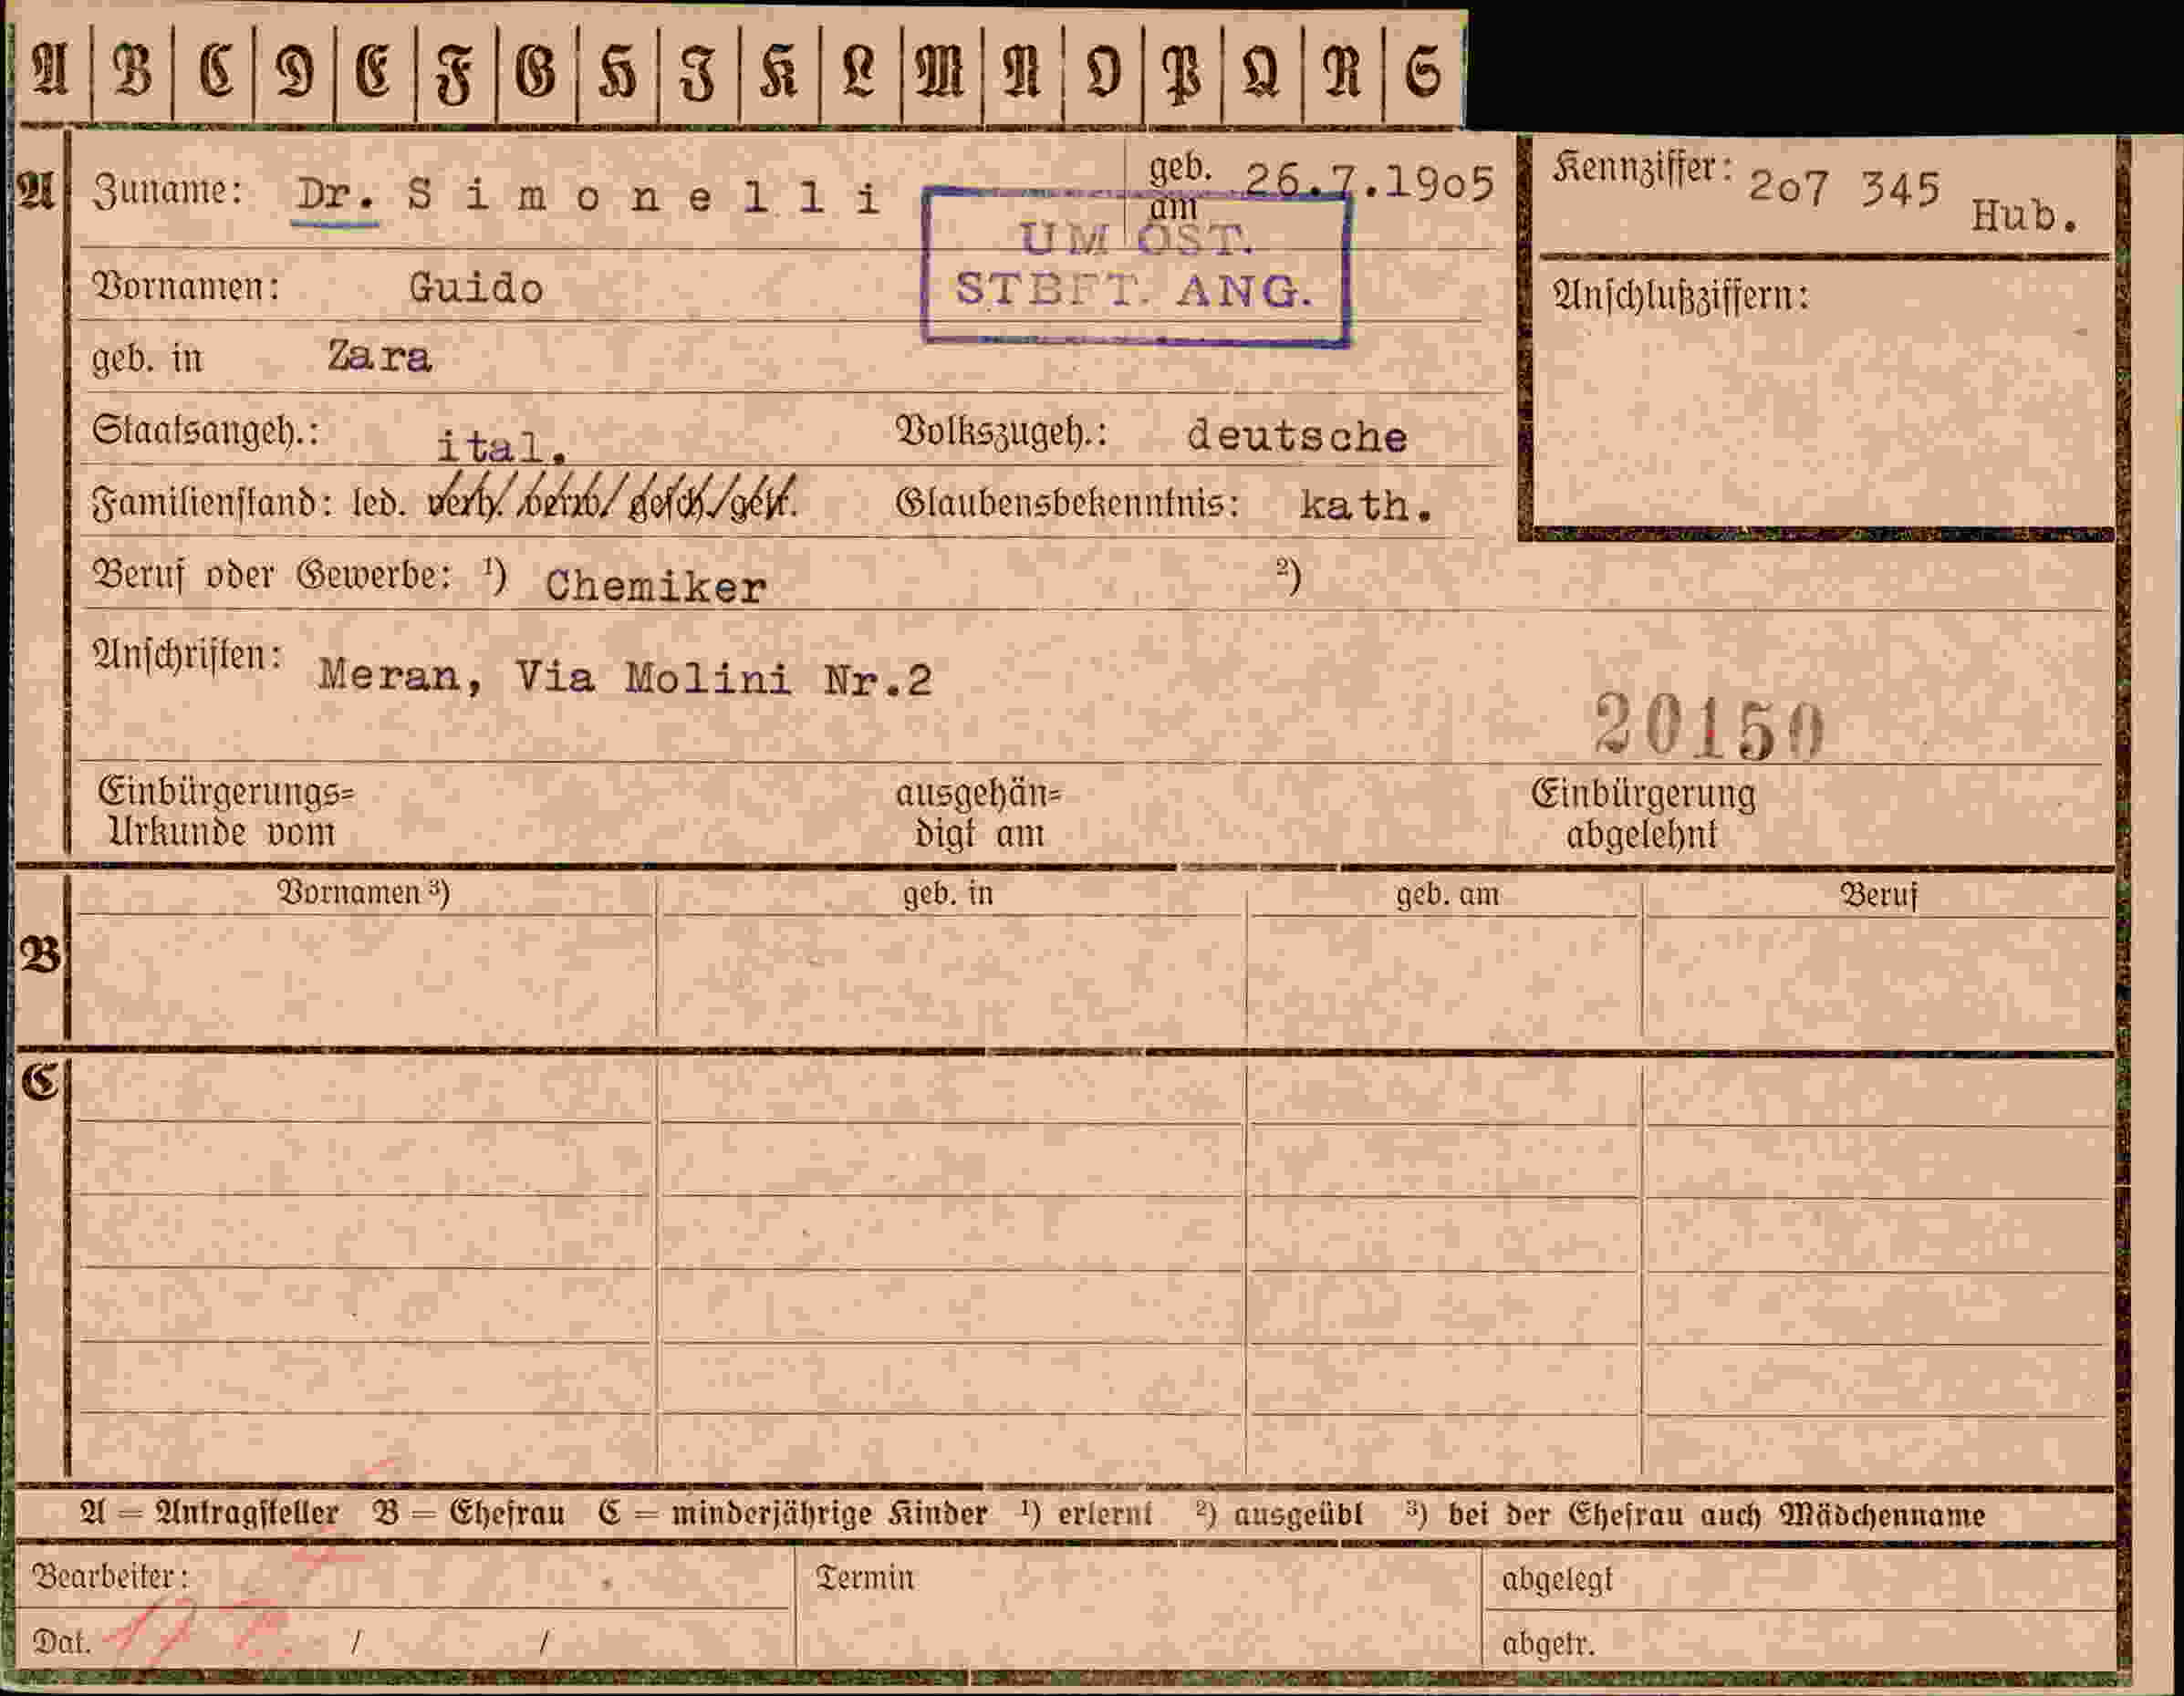 A B C D E F G H J K L M N O P Q R S
A Zuname: Dr. Simonelli geb. am 26.7.1905
Kennziffer: 207 345 Hub.
UM ÖST.
STBFT. ANG.
Vornamen: Guido
Anschlußziffern:
geb. in Zara
Staatsangeh.: ital. Volkszugeh.: deutsche
Familienstand: led. verh./verw./gesch./getr. Glaubensbekenntnis: kath.
Beruf oder Gewerbe: ¹) Chemiker ²)
Anschriften: Meran, Via Molini Nr.2
20150
Einbürgerungs= ausgehän= Einbürgerung
Urkunde vom digt am abgelehnt
Vornamen ³) geb. in geb. am Beruf
B
C
A = Antragsteller B = Ehefrau C = minderjährige Kinder ¹) erlernt ²) ausgeübt ³) bei der Ehefrau auch Mädchenname
Bearbeiter: Termin abgelegt
Dat. / / abgetr.